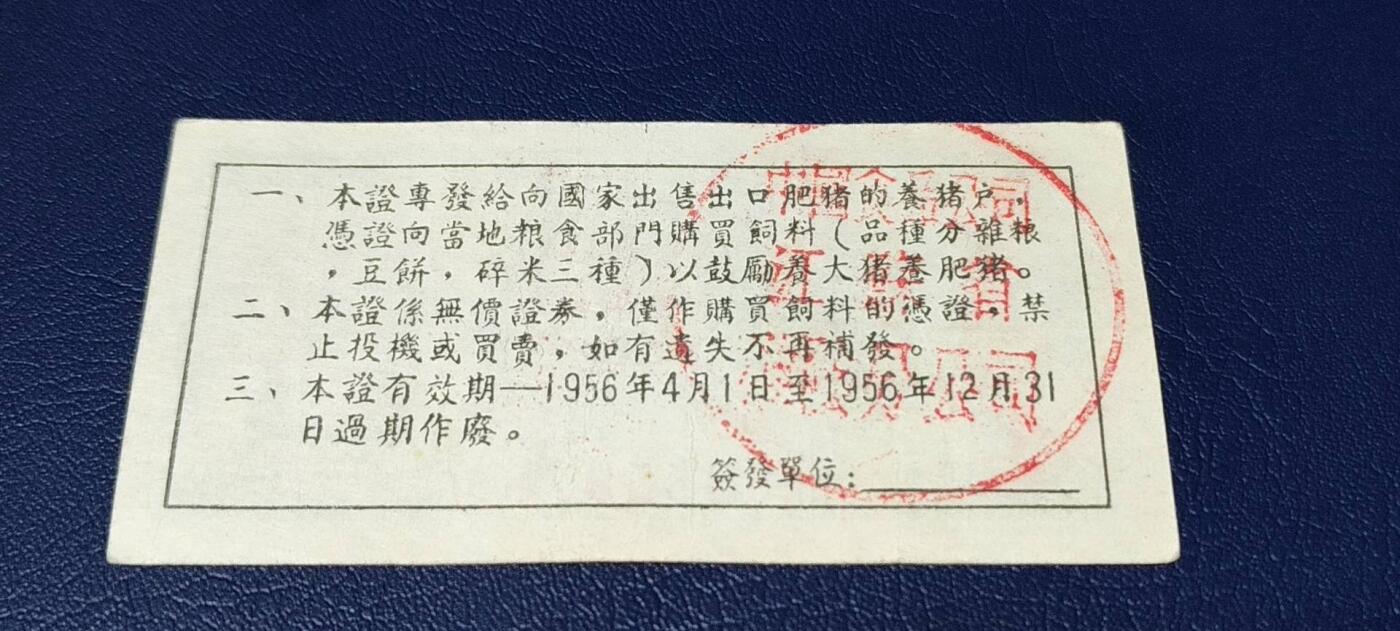 一、本證專發給向國家出售出口肥猪的養猪户，
憑證向當地粮食部門購買飼料（品種分雜粮
，豆餅，碎米三種）以鼓勵養大猪養肥猪。
二、本證係無價證券，僅作購買飼料的憑證，禁
止投機或買賣，如有遺失不再補發。
三、本證有效期—1956年4月1日至1956年12月31
日過期作廢。
簽發單位：
中国食品公司
江 省
公司